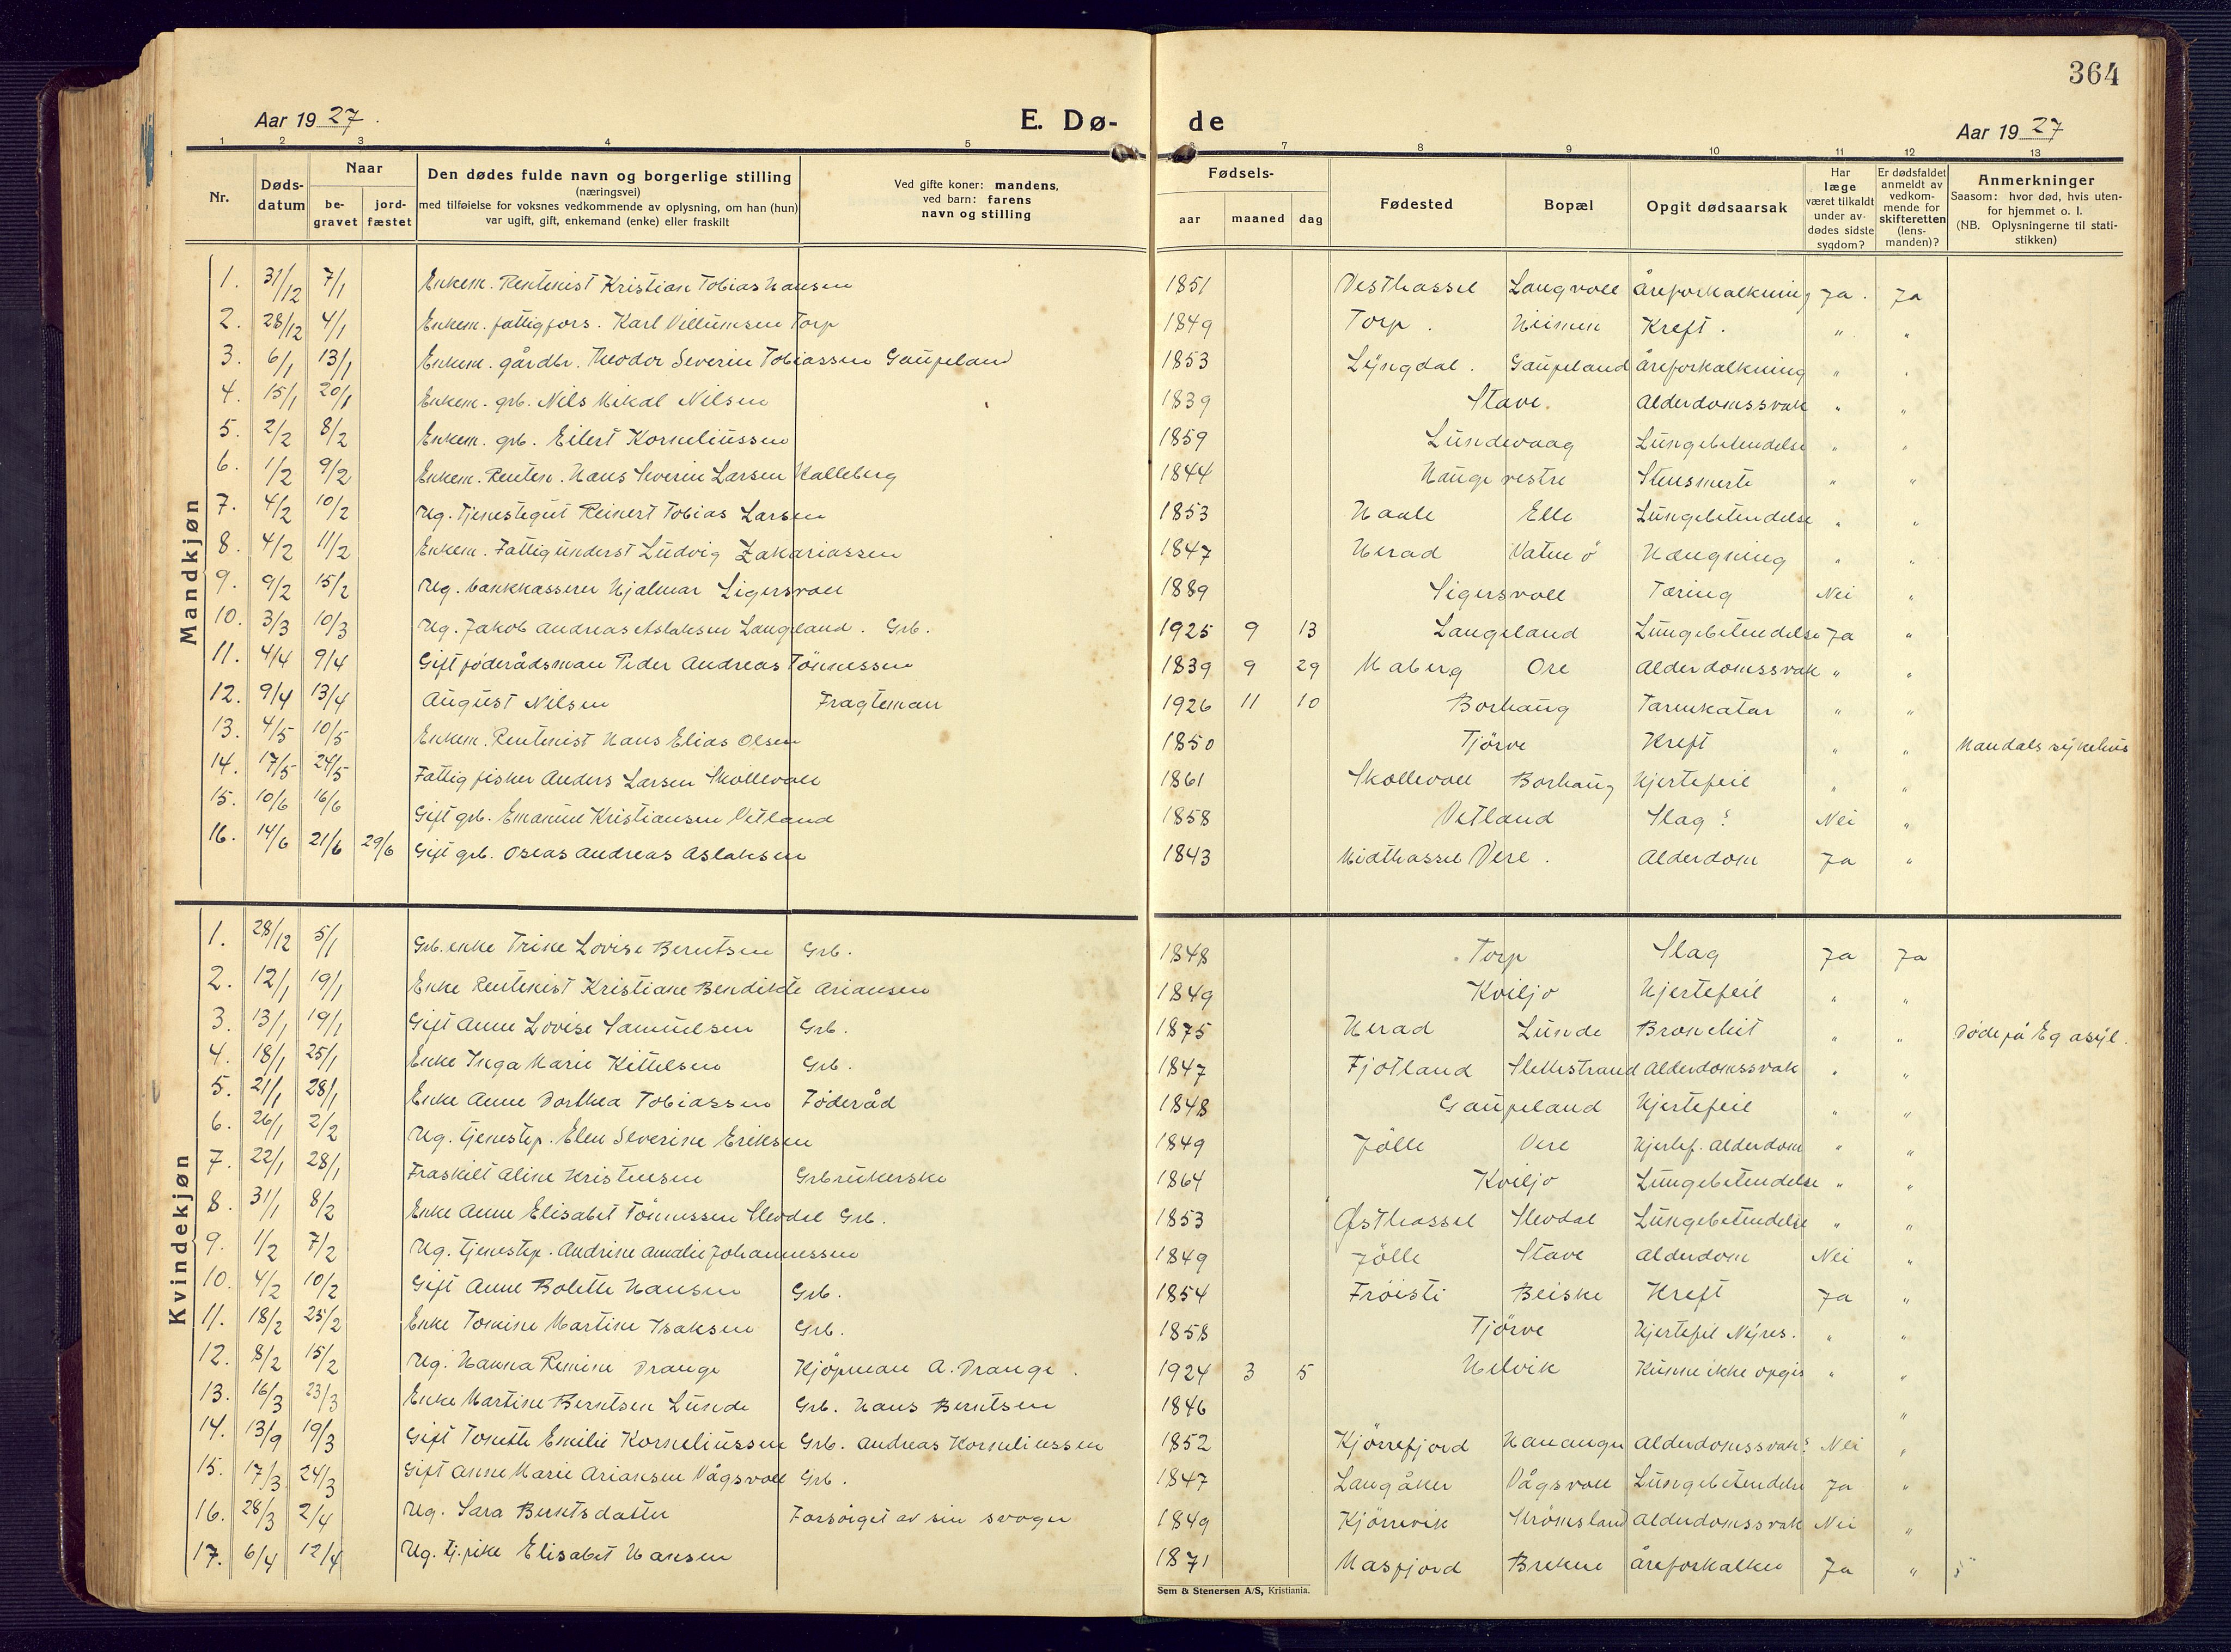 364
Aar 1927. E. Dø- de Aar 1927
1 2 3 4 5 6 7 8 9 10 11 12 13
Nr. Døds-datum Naar be-gravet jord-fæstet Den dødes fulde navn og borgerlige stilling (næringsvei) med tilføielse for voksnes vedkommende av oplysning, om han (hun) var ugift, gift, enkemand (enke) eller fraskilt Ved gifte koner: mandens, ved barn: farens navn og stilling Fødsels- aar maaned dag Fødested Bopæl Opgit dødsaarsak Har læge været tilkaldt under av-dødes sidste sygdom? Er dødsfaldet anmeldt av vedkom-mende for skifteretten (lens-manden)? Anmerkninger Saasom: hvor død, hvis uten-for hjemmet o. l. (NB. Oplysningerne til stati-stikken)
Mandkjøn
1. 31/12 7/1 Enkem. Rentenist Kristian Tobias Hansen 1851 Vesthassel Langvoll Åreforkalkning Ja. Ja
2. 28/12 4/1 Enkem. fattigfors. Karl Villumsen Torp 1849 Torp. Kreft. " "
3. 6/1 13/1 Enkem. gårdbr. Theodor Severin Tobiassen Gaupeland 1853 Lyngdal. Gaupeland åreforkalkning " "
4. 15/1 20/1 Enkem. grb. Nils Mikal Nilsen 1839 Stave. Alderdomssvak " "
5. 2/2 8/2 Enkem. grb. Eilert Korneliussen 1859 Lundevaag Lungebetendelse " "
6. 1/2 9/2 Enkem. Renten. Hans Severin Larsen Kalleberg 1844 Hauge vestre Stensmerte " "
7. 4/2 10/2 Ug. Tjenestegut Reinert Tobias Larsen 1853 Haale Elle Lungebetendelse " "
8. 4/2 11/2 Enkem. Fattigunderst Ludvig Zakariassen 1847 Herad Vatne ö Hængning " "
9. 9/2 15/2 Ug. bankkasserer Hjalmar Sigersvoll 1889 Sigersvoll Tæring Nei "
10. 3/3 10/3 Ug. Jakob Andreas Aslaksen Langeland. Grb. 1925 9 13 Langeland Lungebetendelse Ja "
11. 4/4 9/4 Gift föderådsman Peder Andreas Tönnessen 1839 9 29 Maberg Ore Alderdomssvak " "
12. 9/4 13/4 August Nilsen Fragteman 1926 11 10 Borhaug Tarmkatar " "
13. 4/5 10/5 Enkem. Rentenist Hans Elias Olsen 1850 Tjörve Kreft " " Mandals sykehus
14. 17/5 24/5 Fattig fisker Anders Larsen Skollevoll 1861 Skollevoll Borhaug Hjertefeil " "
15. 10/6 16/6 Gift grb. Emanuel Kristiansen Vetland 1858 Vetland Slag? Nei "
16. 14/6 21/6 29/6 Gift grb. Oseas Andreas Aslaksen 1843 Midthassel Vere. Alderdom Ja "
Kvindekjøn
1. 28/12 5/1 Grb. enke Trine Lovise Berntsen Grb. 1848 Torp Slag Ja Ja
2. 12/1 19/1 Enke Rentenist Kristiane Bendikte Ariansen 1849 Kviljo Hjertefeil " "
3. 13/1 19/1 Gift Anne Lovise Samuelsen Grb. 1875 Herad Lunde Bronchit " " Döde på Eg asyl.
4. 18/1 25/1 Enke Inga Marie Kittelsen Grb. 1847 Fjotland Slettestrand Alderdomssvak " "
5. 21/1 28/1 Enke Anne Dorthea Tobiassen Föderåd 1848 Gaupeland Hjertefeil " "
6. 26/1 2/2 Ug. tjenestep. Elen Severine Eriksen 1849 Jölle Vere Hjertef. Alderdom " "
7. 22/1 28/1 Fraskilt Aline Kristensen Grbrukerske 1864 Kviljo Lungebetendelse " "
8. 31/1 8/2 Enke Anne Elisabet Tönnessen Slevdal Grb. 1853 Østhassel Slevdal Lungebetendelse " "
9. 1/2 7/2 Ug. tjenestep. Andrine Amalie Johannessen 1849 Jölle Stave Alderdom Nei "
10. 4/2 10/2 Gift Anne Bolette Hansen Grb. 1854 Fröisti Beiske Kreft Ja "
11. 18/2 25/2 Enke Tomine Martine Isaksen Grb. 1858 Tjörve Hjertefeil Nyres. " "
12. 8/2 15/2 Ug. Hanna Remine Drange Kjöpman A. Drange. 1924 3 5 Helvik Kunne ikke opgis " "
13. 16/3 23/3 Enke Martine Berntsen Lunde Grb. Hans Berntsen 1846 "
14. 13/9 19/3 Gift Tonette Emilie Korneliussen Grb. Andreas Korneliussen 1852 Kjörrefjord Hananger Alderdomssvak? Nei "
15. 17/3 24/3 Gift Anne Marie Ariansen Vågsvoll Grb. 1847 Langåker Vågsvoll Lungebetendelse Ja "
16. 28/3 2/4 Ug. Sara Berntsdatter Forsörget av sin svoger 1849 Kjörrevik Strömsland Alderdomssvak Nei "
17. 6/4 12/4 Ug. tj. pike Elisabet Hansen 1871 Hasfjord Brekne åreforkalken Ja "
Sem & Stenersen A/S, Kristiania.